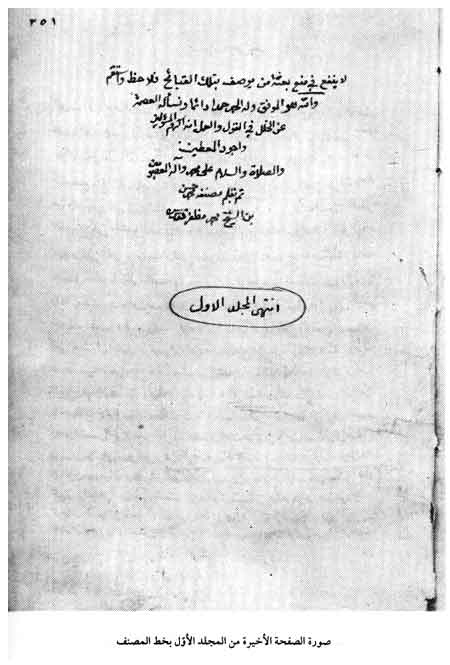 ٣٥١
لا ينفع في منع بعثة من يوصف بتلك القبائح فلاحظ واستقم
والله هو الموفق وله الحمد حمدا دائما ونسأله العصمة
عن الخلل في القول والعمل انه اكرم
واجود المعطين
والصلاة والسلام على محمد وآله المعصومين
تم بقلم مصنفه محمد حسن
بن الشيخ محمد مظفر
انتهى المجلد الاول
صورة الصفحة الأخيرة من المجلد الأوّل بخط المصنف